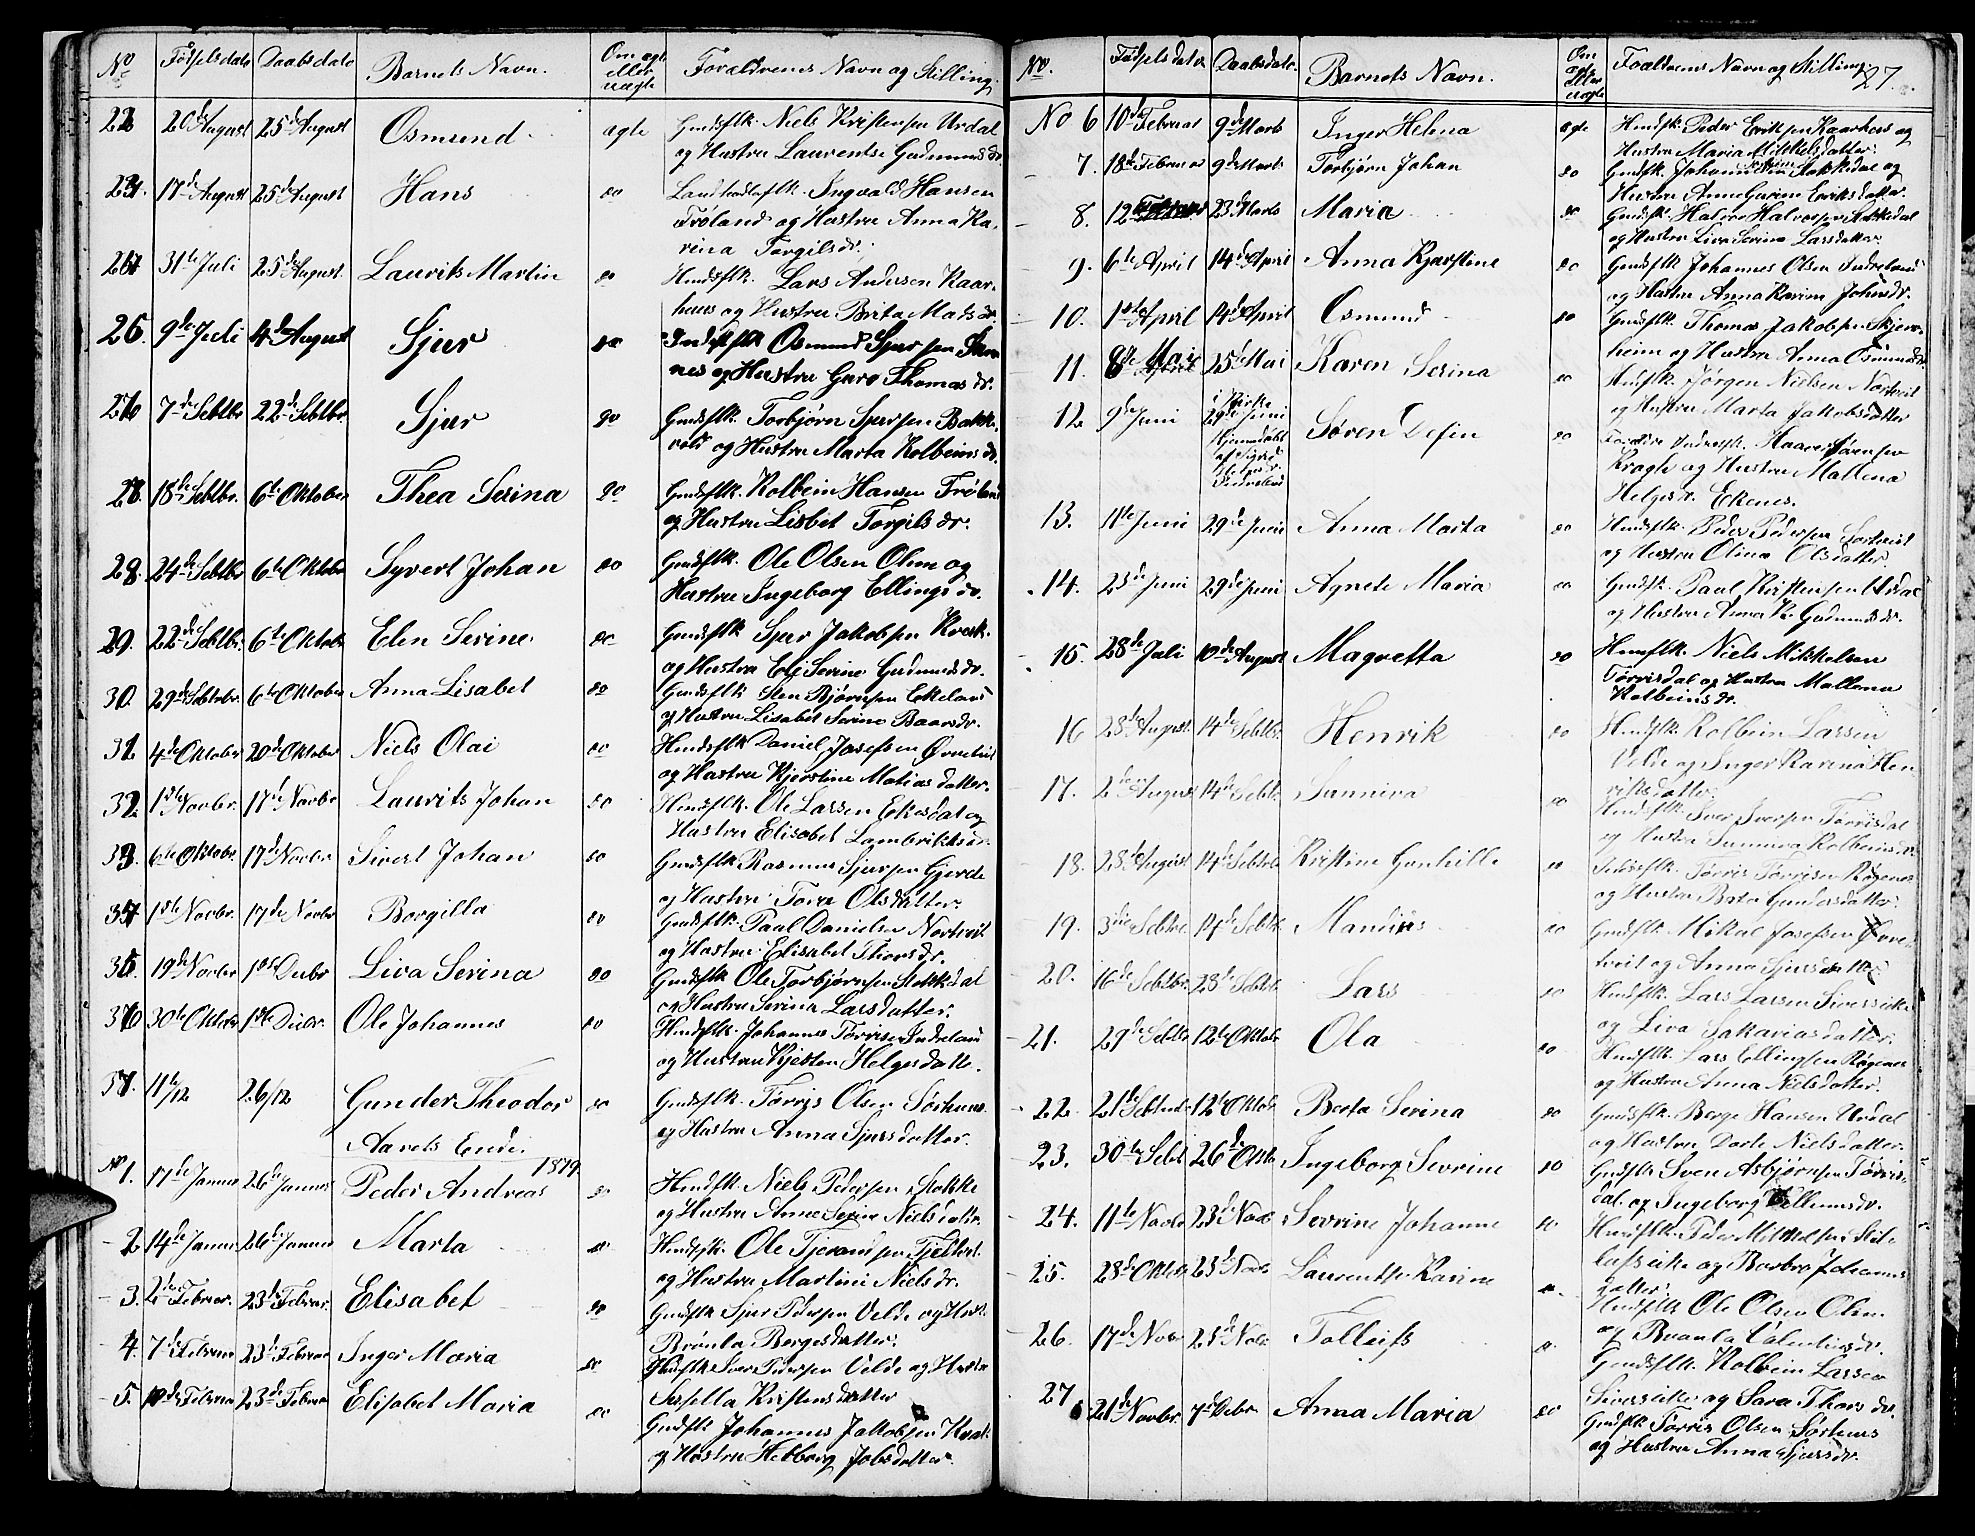 No Fødselsdato Daabsdato Barnets Navn. Om ægte eller uægte Forældrenes Navn og Stilling.
22 20de August 25de August Osmund ægte Gmdsflk. Niels Kristensen Urdal
og Hustru Laurentse Gudmundsdr.
23. 17de August 25de August Hans do Ingvald Hansen
Frøland og Hustru Anna Ka-
rina Torgilsdr.
24 31te Juli 25de August. Laurits Martin do Hmdsflk. Lars Andersen Kaar-
huus og Hustru Brita Matsdr.
25. 9de Juli 4de August Sjur do Osmund Sjursen
nes og Hustru Guro Thomasdr.
26 7de Sebtbr. 22de Sebtbr. Sjur do Gmdsflk. Torbjørn Sjursen Bakke-
vold og Hustru Marta Kolbeinsdr.
27. 18de Sebtbr. 6te Oktober Thea Serina do Gmdsflk. Kolbein Hansen Frøland
og Hustru Lisbet Torgilsdr.
28. 24de Sebtbr 6te Oktobr Syvert Johan do Gmdsflk. Ole Olsen Olim og
Hustru Ingeborg Ellingsdr.
29. 22de Sebtbr. 6te Oktobr Elen Serine do Gmdsflk Sjur Jakobsen Kvark-
og Hustru Eli Serine Gudmundsdr.
30. 29de Sebtbr. 6te Oktober Anna Lisabet do Gmdsflk Sten Bjørnsen Ekeland
og Hustru Lisabet Serine Baarsdr.
31. 4de Oktober 20de Oktobr Niels Olai do Hmdsflk Daniel Josefsen Ørnetvid
og Hustru Kjerstine Matiasdatter.
32. 1ste Novbr. 17de Novbr Laurits Johan do Hmdsflk. Ole Larsen Ekesdal og
Hustru Elisabet Lambriktsdr.
33. 6te Oktobr. 17de Novbr. Sivert Johan do Gmdsflk Rasmus Sjursen Gjerde
og Hustru Tora Olsdatter.
34 1ste Novbr. 17de Novbr Borgilla do Gmdsflk. Paul Danielsen Nortveit
og Hustru Elisabet Thorsdr.
35. 19de Novbr 1ste Decbr Liva Serina do Gmdsflk Ole Torbjørnsen Stokkedal
og Hustru Serina Larsdatter.
36 30te Oktobr 1ste Decbr. Ole Johannes do Hmdsflk. Johannes Tørrisen Indreland
og Hustru Kjesten Helgesdatte.
37. 11te/12 26/12 Gunder Theodor do Gmdsflk. Tørris Olsen Sørhuus
og Hustru Anna Sjursdatter.
Aarets Ende.
1879
No 1. 17de Januar 26de Januar Peder Andreas do Hmdsflk Niels Pedersen Stokke
og Hustru Anne Serine Nielsdatr.
2 14de Januar 26de Januar Marta do Hmdsflk. Ole Tjerandsen
og Hustru Martine Nielsdr.
3. 2den Februar. 23de Februar. Elisabet do Gmdsflk Sjur Pedersen Velde og Hust.
Brønla Borgesdatter.
4. 7de Februar 23de Februar Inger Maria do Hmdsflk Iver Pedersen Velde og Hustru
Sissella Kristensdatter
5. 10de Februar 23de Februar Elisabet Maria do Gmdsflk Johannes Jakobsen
og Hustru Hebborg Jobsdatter.
27.
No. Fødselsdato Daabsdato. Barnets Navn. Om ægte eller uægte Forældrenes Navn og Stilling.
No 6 10de Februar 9de Marts Inger Helena ægte Hmdsflk. Peder Eriksen Kaarhus og
Hustru Maria Mikkelsdatter.
7. 18de Februar 9de Marts Torbjørn Johan do Gmdsflk. Johannes Stokkedal og
Hustru Anna Guren Eriksdatter.
8. 12 Februar 23de Marts Maria do Gmdsflk. Halvor Halvorsen Stokkedal
og Hustru Liva Serina Larsdatter.
9. 6te April 14de April Anna Kjerstine do Gmdsflk Johannes Olsen Indreland
og Hustru Anna Karine Johnsdr.
10. 1ste April 14de April Osmund do Gmdsflk. Thomas Jakobsen Skjern-
heim og Hustru Anna Osmundsdr.
11. 8de Mai 25de Mai Karen Serina do Hmdsflk. Jørgen Nielsen Nortveit
og Hustru Marta Jakobsdatter
12 9de Juni i Kirke 29de Juni Hjemmedøbt af Sigrid Indreland Søren Defin do Haaver Sørensen
Kragle og Hustru Mallena
Helgesdr. Ekenes.
13. 11te Juni 29de Juni Anna Marta do Hmdsflk. Peder Pedersen Sortveit
og Hustru Olina Olsdatter.
14. 23de Juni 29de Juni Agnete Maria do Gmdsflk. Paul Kristensen Urdal
og Hustru Anna K. Gudmundsdr.
15. 28de Juli 10de August Magretta do Hmdsflk. Niels Mikkelsen
Tørrisdal og Hustru Mallena
Kolbeinsdr.
16 28de August 14de Sebtbr. Henrik do Hmdsflk. Kolbein Larsen
Velde og Inger Karina Hen-
riksdatter.
17. 2den August 14de Sebtbr. Sunniva do Hmdsflk. Iver Iversen Tørrisdal
og Hustru Sunniva Kolbeinsdr.
18. 28de August 14de Sebtbr Kristine Gunhille do Tørris Tørrisen Røgenes
og Hustru Berta Gundersdatter.
19. 3die Sebtbr. 14de Sebtbr Mandius do Gmdsflk. Mikal Josefsen Ørne-
tveit og Anna Sjursdatte
20. 16de Sebtbr. 28de Sebtbr Lars do Hmdsflk. Lars Larsen
og Liva Sakariasdatter.
21. 29de Sebtbr 12te Oktobr Ola do Hmdsflk. Lars Ellingsen Røgenes
og Hustru Anna Nielsdatter.
22. 21de Sebtmbr 12te Oktobr Berta Serina do Gmdsflk. Berge Hansen Urdal
og Hustru Dorte Nielsdatter.
23. 30te Sebt 26de Oktbr Ingeborg Sevrine do Gmdsflk Sven Asbjørnsen Tørris-
dal og Ingeborg Vellemsdr.
24. 11te Novbr 23de Novbr Sevrine Johanne do Hmdsflk. Peder Mikkelsen
og Barbro Johannes-
datter.
25. 28de Oktbr 23de Novbr Laurentse Karine do Hmdsflk Ole Olsen Olim
og Brunla Valentinsdr.
26. 17de Novbr 23de Novbr Tolleifs do Gmdsflk. Kolbein Larsen
og Sara Thorsdr.
27 21de Novbr. 7de Debr. Anna Maria do Gmdsflk Tørris Olsen Sørhuus
og Hustru Anna Sjursdr.